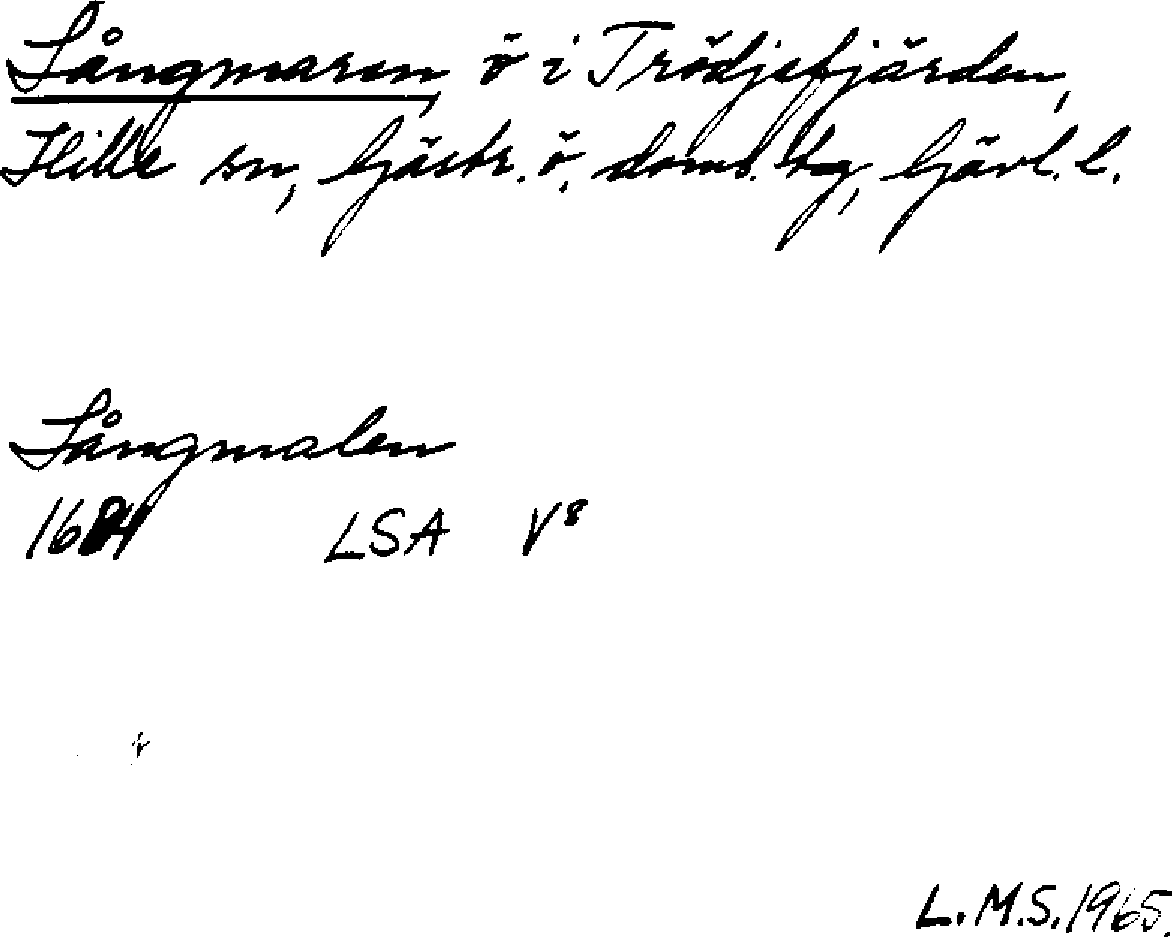 Långmaren, ö i Trödjefjärden,
Hille sn, Gästr. ö. doms. tg, Gävl. l.
Långmalen
LSA V⁸
L.M.S. 1965.